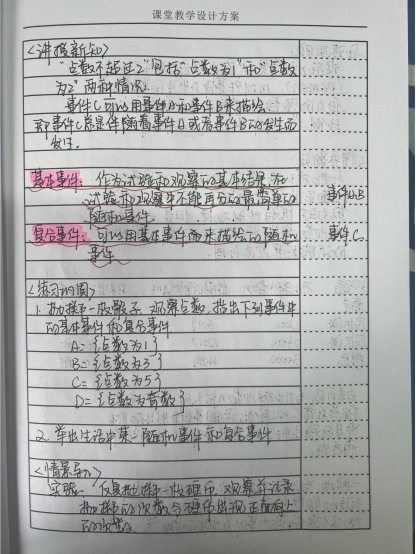 课堂教学设计方案
<讲授新知>
"点数不超过2"包括"点数为1"和"点数
为2"两种情况.
事件C可以用事件A和事件B来描绘
即事件C总是伴随着事件A或者事件B的发生而
发生.
基本事件: 作为试验和观察的基本结果,在
试验和观察中不能再分的最简单的
随机事件. 事件A.B
复合事件: 可以用基本事件来描绘的随机 事件C.
事件
<练习巩固>
1. 抛掷一枚骰子,观察点数,指出下列事件中
的基本事件和复合事件
A={点数为1}
B={点数为3}
C={点数为5}
D={点数为奇数}
2. 举出生活中某一随机事件和复合事件
<情景导入>
实验: 反复抛掷一枚硬币,观察并记录
抛掷的次数与硬币出现正面向上
的次数.